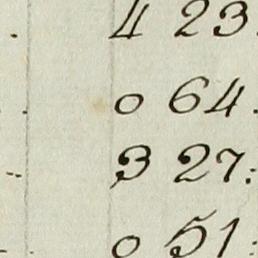 . 4 23.
. 0 64.
-- 3 27:
-- . 0 51: